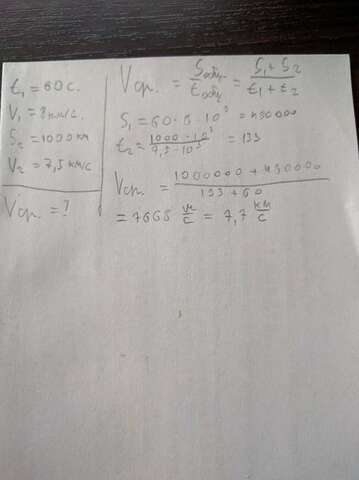 t₁ = 60 с.
V₁ = 8 км/с.
S₂ = 1000 км
V₂ = 7,5 км/с
Vср. = ?
Vср. = Sобщ / tобщ = S₁ + S₂ / t₁ + t₂
S₁ = 60 · 8 · 10³ = 480000
t₂ = 1000 · 10³ / 7,5 · 10³ = 133
Vср. = 1000000 + 480000 / 133 + 60
= 7668 м/с = 7,7 км/с